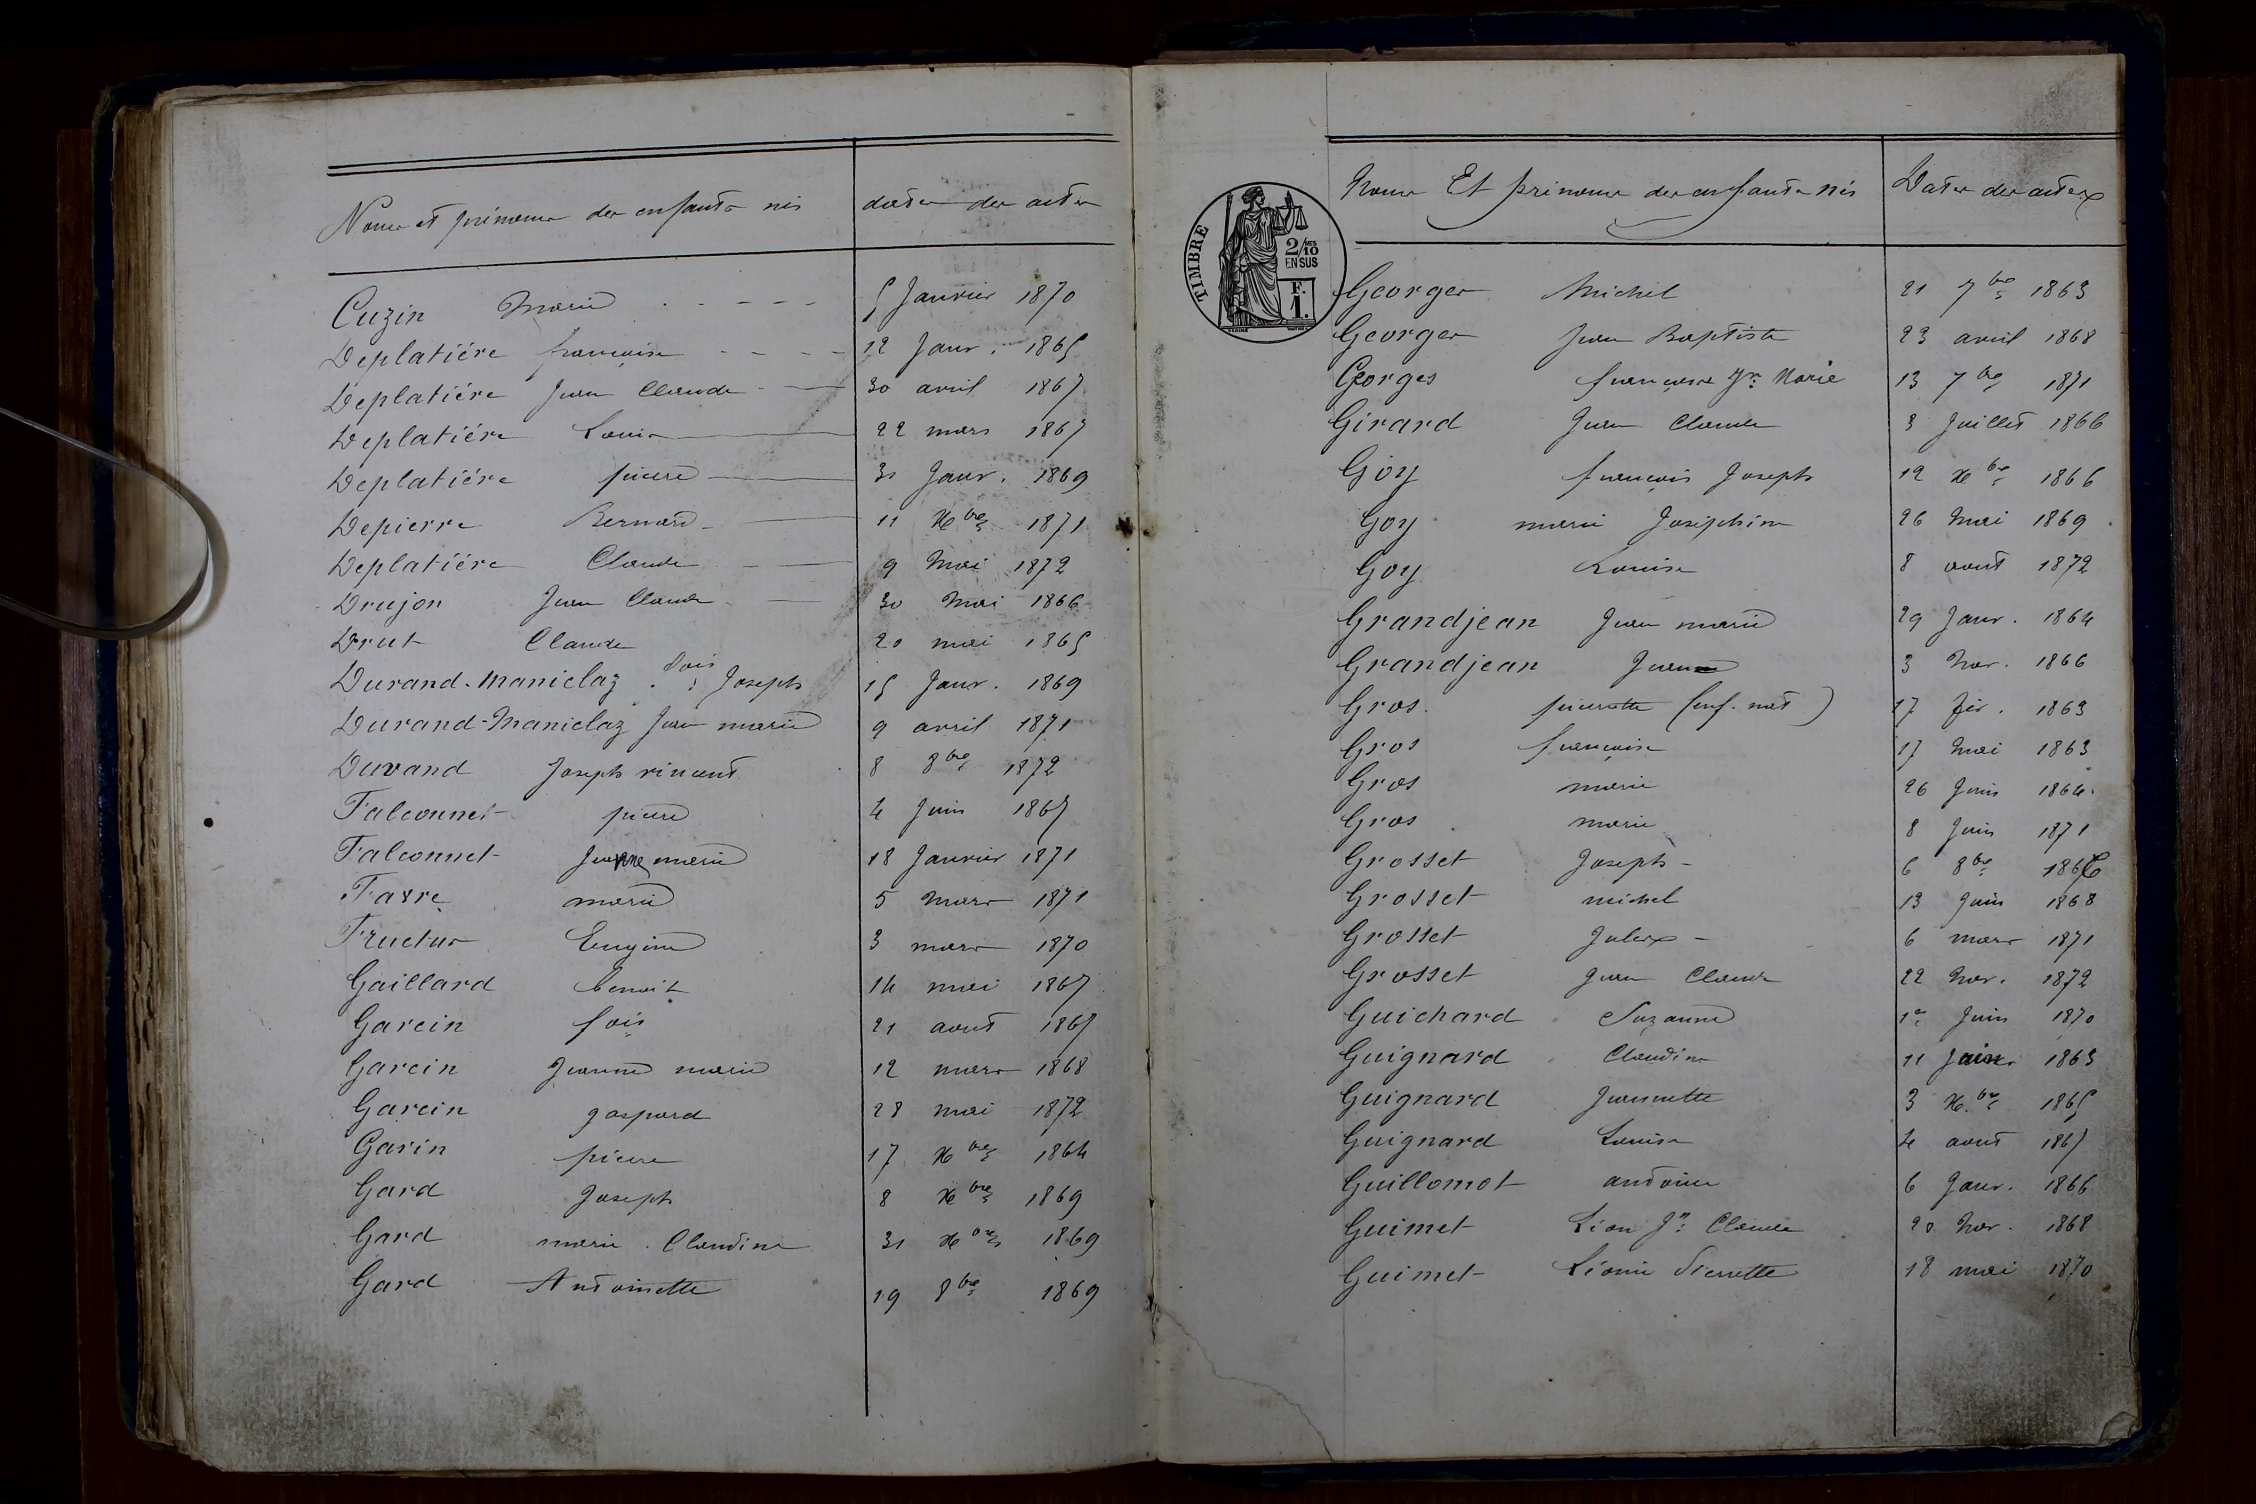 Noms et prénoms des enfants nés dates des actes
Cuzin Marie 5 Janvier 1870
Deplatiére françoise 12 Janv. 1865
Deplatiére Jean Claude 30 avril 1867
Deplatiére Louis 22 mars 1867
Deplatiére pierre 31 Janv. 1869
Depierre Bernard 11 Xbre 1871
Deplatiére Claude 9 Mai 1872
Drujon Jean Claude 30 Mai 1866
Drut Claude 20 mai 1865
Durand-Maniclaz fois Joseph 15 Janv. 1869
Durand-Maniclaz Jean marie 9 avril 1871
Durand Joseph vincent 8 8bre 1872
Falconnet pierre 4 Juin 1867
Falconnet Jeanne marie 18 Janvier 1871
Favre marie 5 Mars 1871
Fructus Eugénie 3 mars 1870
Gaillard benoit 14 mai 1867
Garcin fois 21 aout 1867
Garcin Jeanne marie 12 mars 1868
Garcin gaspard 28 mai 1872
Garin pierre 17 Xbre 1864
Gard Joseph 8 Xbre 1869
Gard marie Claudine 31 Xbre 1869
Gard Antoinette 19 8bre 1869
TIMBRE
2/10
EN SUS
F.
1.
Noms Et prénoms des enfants nés Dates des actes
Georges Michel 21 7bre 1863
Georges Jean Baptiste 23 avril 1868
Georges françoise Jne Marie 13 7bre 1871
Girard Jean Claude 3 Juillet 1866
Goy françois Joseph 12 Xbre 1866
Goy marie Joséphine 26 Mai 1869
Goy Louise 8 aout 1872
Grandjean Jean marie 29 Janv. 1864
Grandjean Jean 3 Nov. 1866
Gros pierrette (enf. nat) 17 fév. 1863
Gros françoise 17 Mai 1863
Gros marie 26 Juin 1864
Gros marie 8 Juin 1871
Grosset Joseph 6 8bre 1866
Grosset michel 13 Juin 1868
Grosset Jules 6 mars 1871
Grosset Jean Claude 22 Nov. 1872
Guichard Suzanne 1er Juin 1870
Guignard Claudine 11 Juin 1863
Guignard Jeannette 3 Xbre 1865
Guignard Louise 4 aout 1867
Guillomot antoine 6 Janv. 1866
Guimet Léon Jn Claude 20 Nov. 1868
Guimet Léonie Pierrette 18 mai 1870